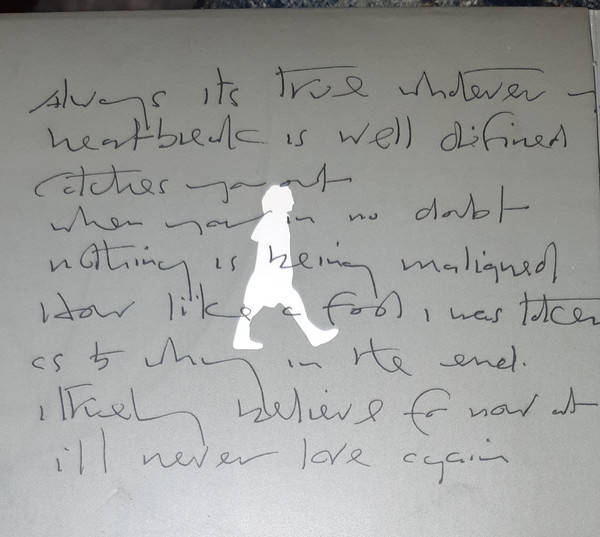 Always its True whatever
heartbreak is well difined
Catches you out
when your in no doubt
nothing is being maligned
How like a fool i was taken
as to why in the end.
i Truely believe for now at
ill never love again